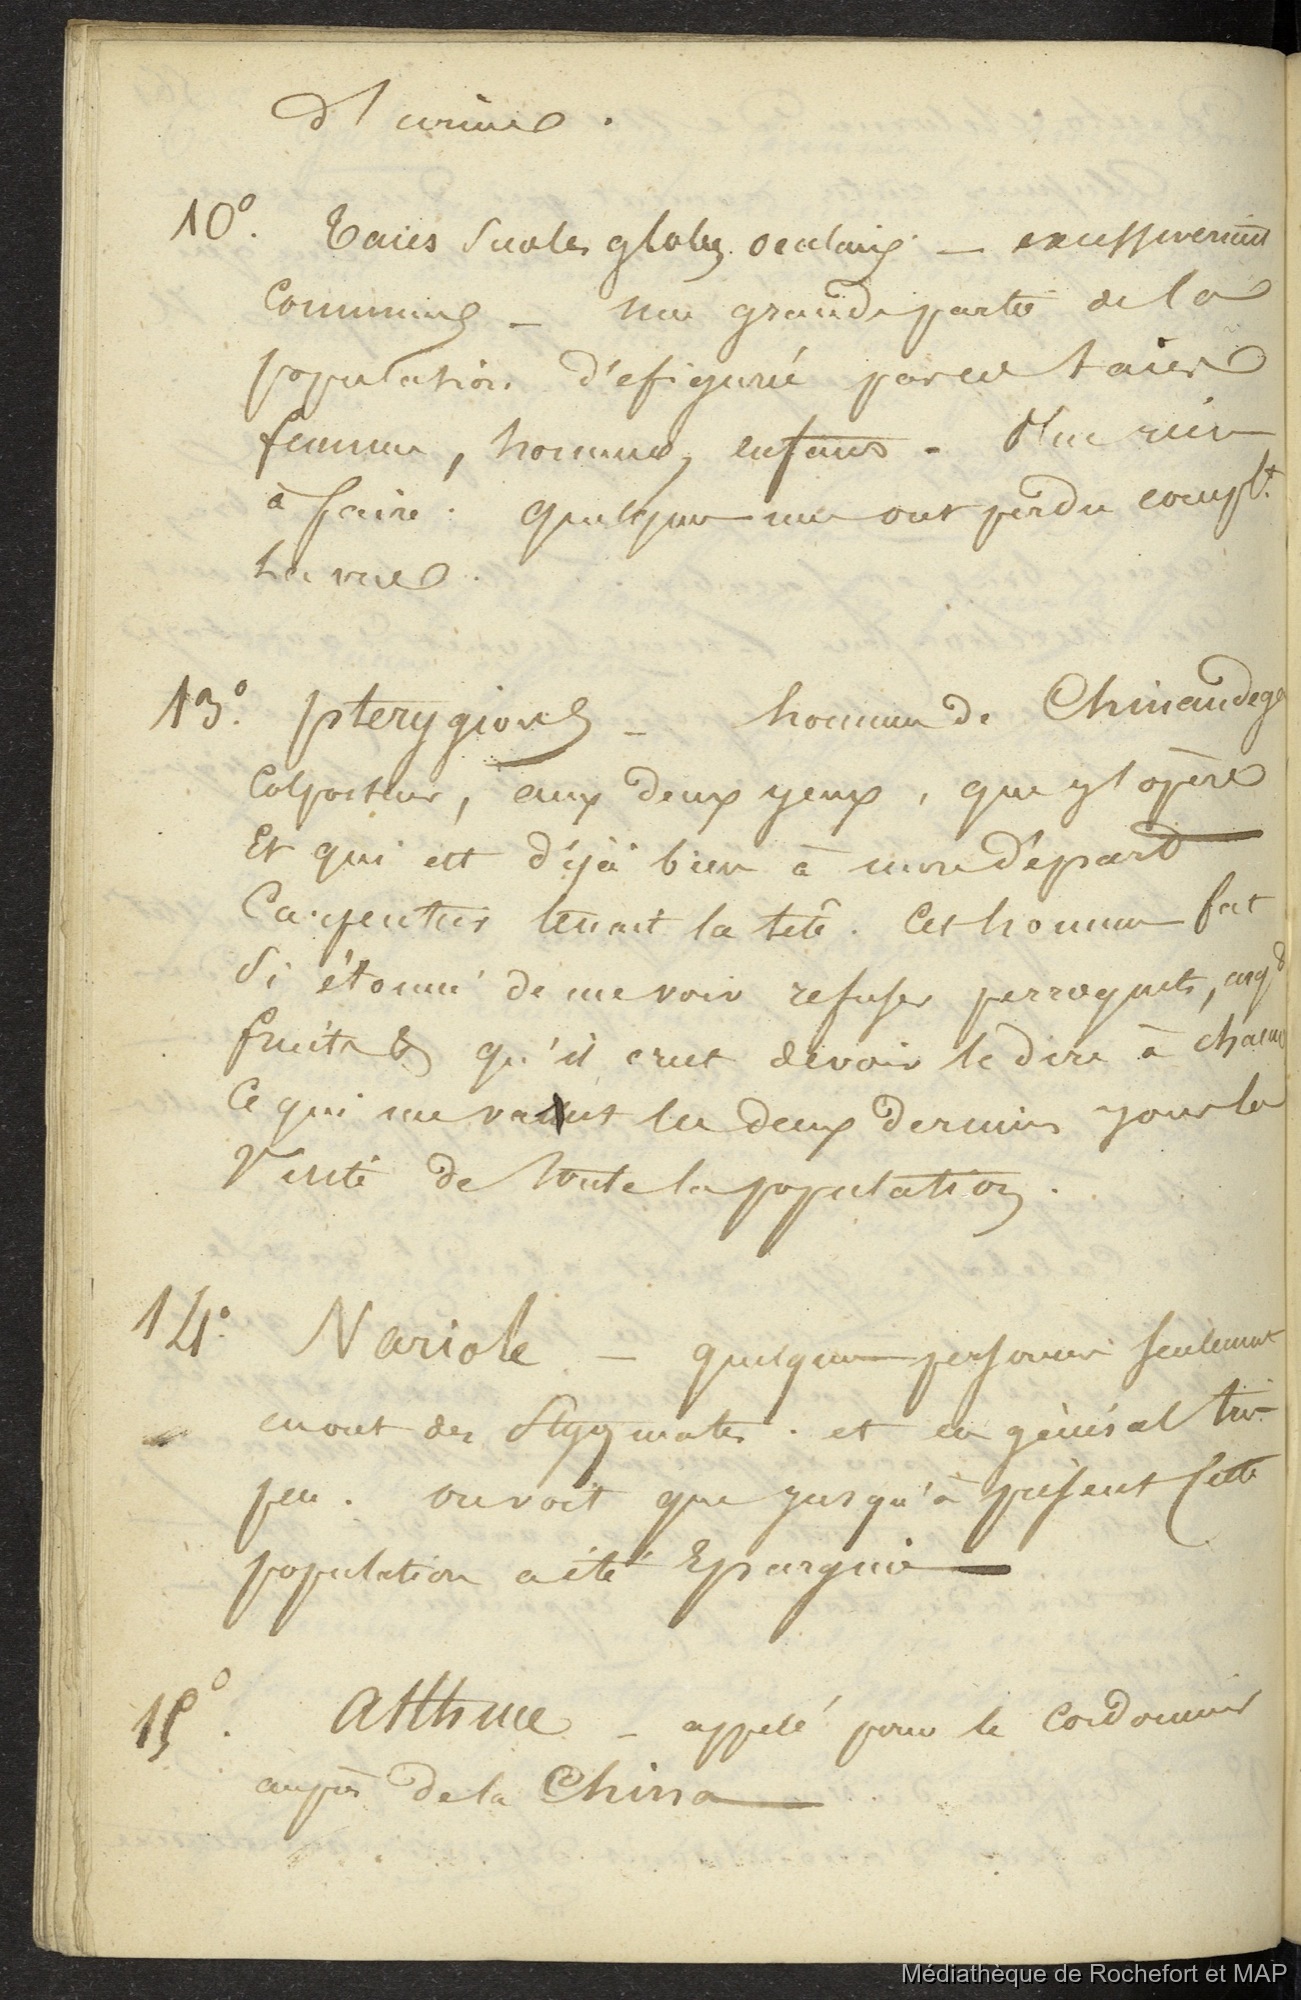 d'urine.
10°. Taies sur les globes oculaires — excessivement
communes — une grande partie de la
population défigurée par ces taies
femmes, hommes, enfans. rien
à faire. quelques uns ont perdu compl.t
la vue.
13°. pterygions — homme de Chinandega
Colporteur, aux deux yeux, que j'opère
Et qui est déjà bien à mon départ
Carpentier tenait la tête. Cet homme fut
Si étonné de me voir refuser perroquets,
fruits & qu'il crut devoir le dire à chacun
Ce qui me valut les deux derniers jours la
Visite de toute la population.
14°. Variole — quelques personnes seulement
en ont des stygmates. et en général très
peu. on voit que jusqu'à présent cette
population a été Epargnée —
15°. Asthme — appelé pour le cordonnier
auprès de la China —
Médiathèque de Rochefort et MAP